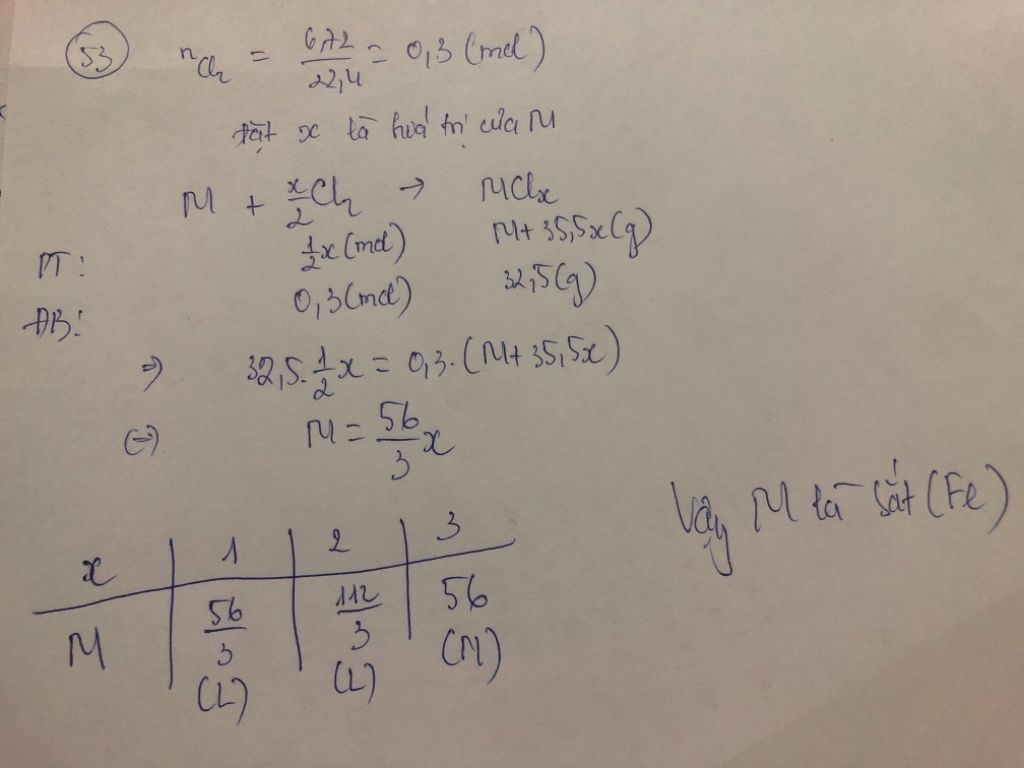 53 nCl2 = 6,72/22,4 = 0,3 (mol)
Đặt x là hoá trị của M
M + x/2 Cl2 → MClx
PT: 1/2x (mol) M + 35,5x (g)
ĐB: 0,3 (mol) 32,5 (g)
⇒ 32,5 . 1/2 x = 0,3 . (M + 35,5x)
⇔ M = 56/3 x
x | 1 | 2 | 3
M | 56/3 (L) | 112/3 (L) | 56 (N)
Vậy M là sắt (Fe)